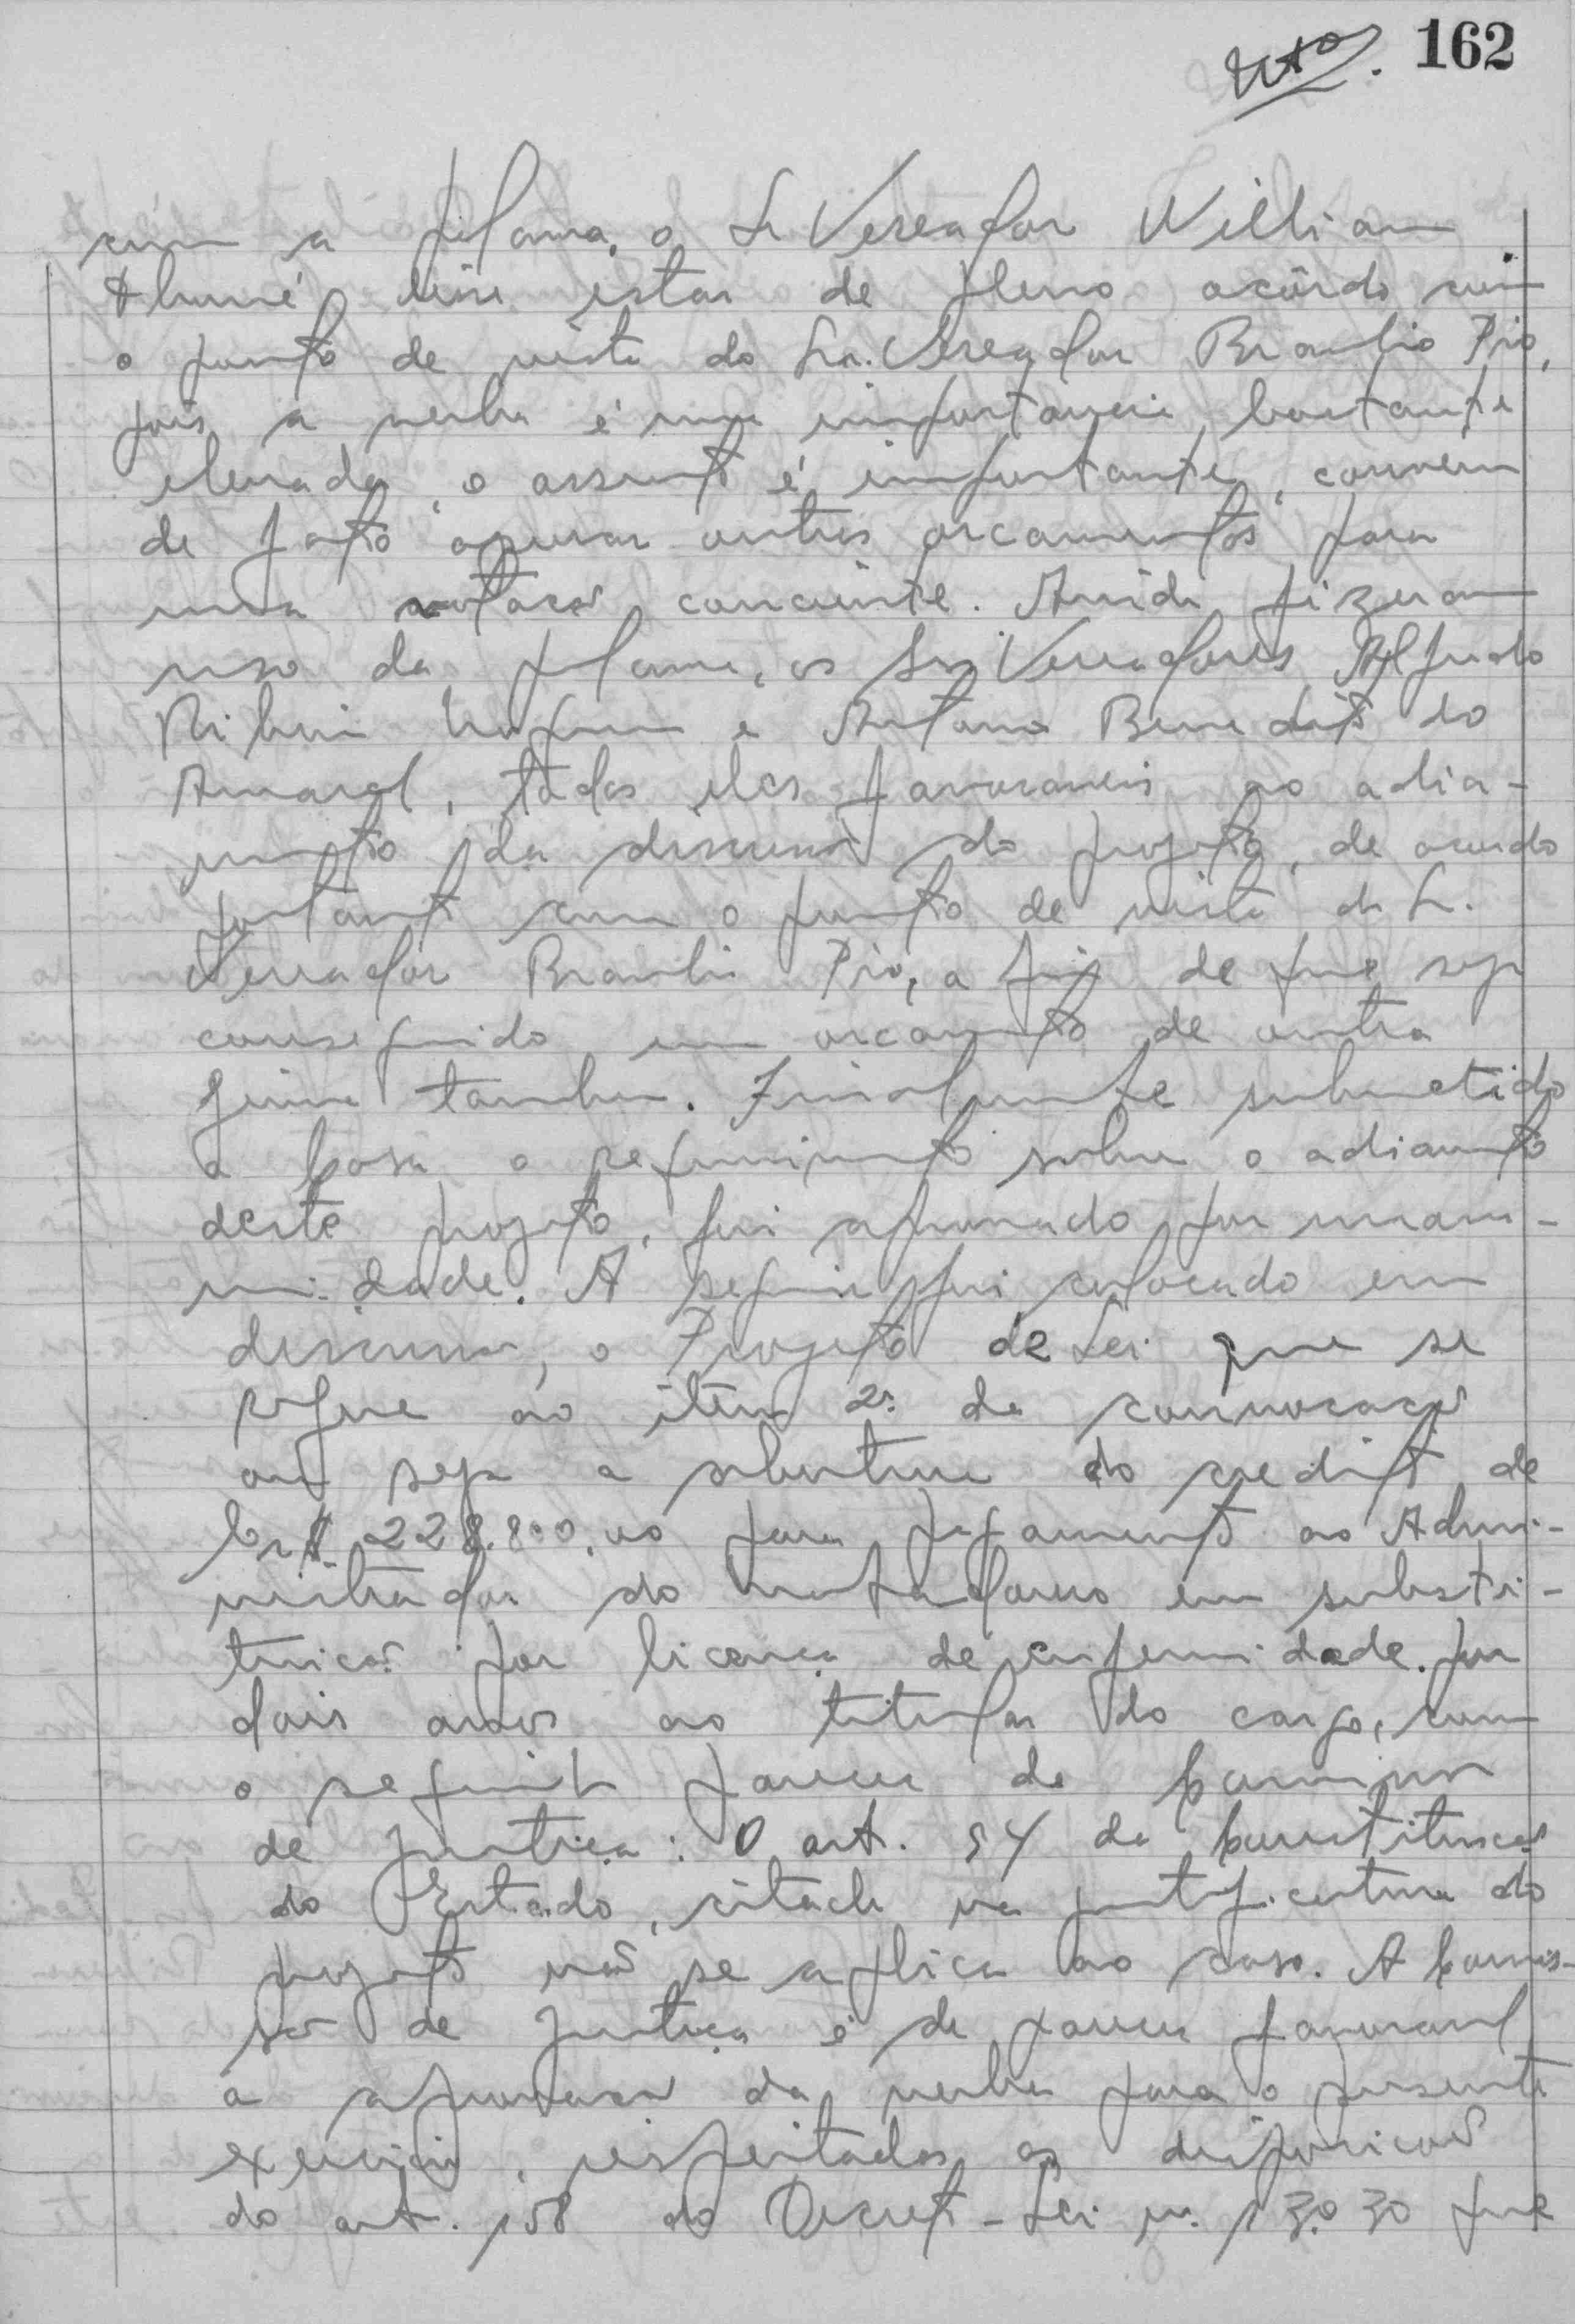 162
com a palavra, o Sr Vereador William
disse estar de pleno acôrdo com
o ponto de vista do Snr. Vereador Braulio Pio,
pois a verba é uma importancia bastante
elevada, o assunto é importante, convem
de fato apurar outros orcamentos para
uma votacão conciente. Ainda fizeram
uso da palavra, os Srs Vereadores Alfredo
Ribeiro e Antonio Benedito do
Amaral, todos eles favoraveis ao adia-
mento da discussão do projeto, de acordo
portanto com o ponto de vista do Sr.
Vereador Braulio Pio, a fim de que seja
conseguido um orcamento de outra
firma tambem. Finalmente submetido
a Casa o requerimento sobre o adiamento
deste projeto, foi aprovado por unani-
midade. A seguir foi colocado em
discussão, o Projeto de Lei que se
refere ao item 2º da convocacão
ou seja a abertura do credito de
Cr$ 228.800,00 para pagamento ao Admi-
nistrador do Matadouro em substi-
tuicão por licença de enfermidade por
dois anos ao titular do cargo, com
o seguinte parecer da Comissão
de Justiça: O art. 54 da Constituicão
do Estado, citado na justificativa do
projeto não se aplica ao caso. A Comis-
são de Justiça é de parecer favoravel
a aprovacão da verba para o presente
exercicio, respeitadas as disposicões
do art. 158 do Decreto-Lei nº 13.030 que